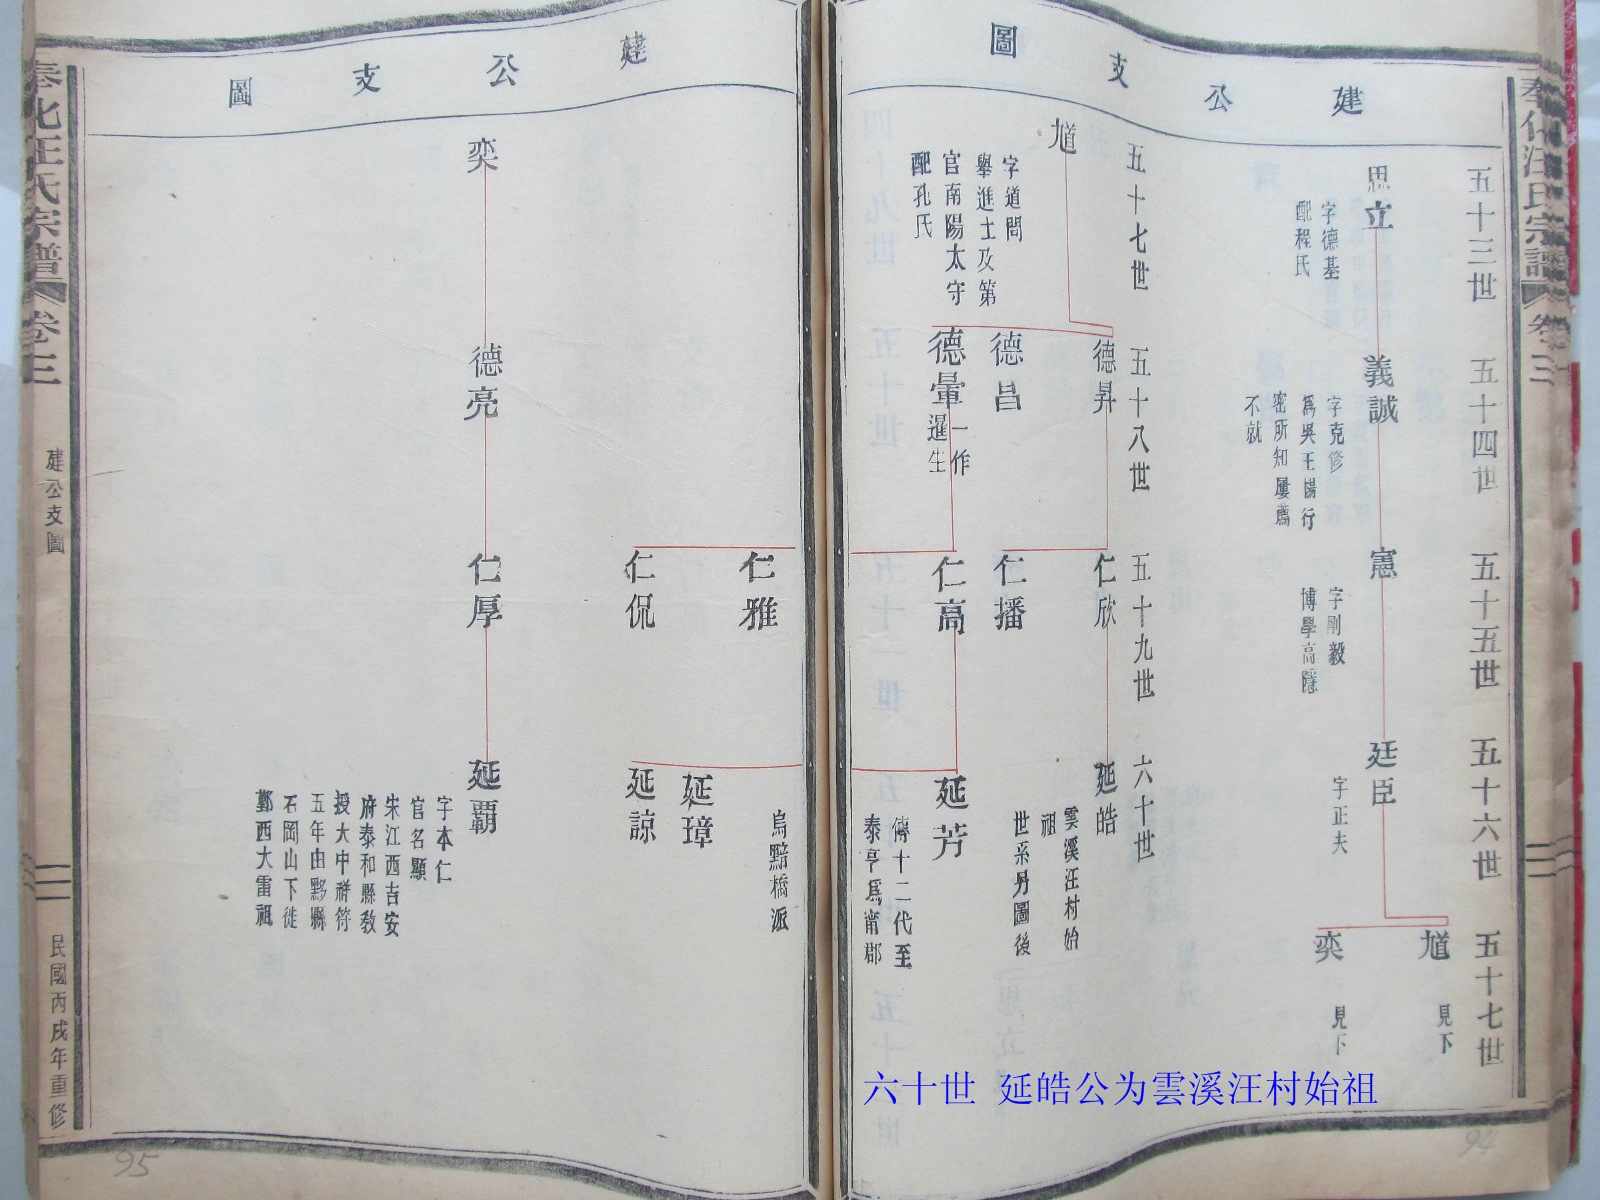 建公支圖
五十三世
思立
字德基
配程氏
五十四世
義誠
字克修
爲吳王楊行
密所知屢薦
不就
五十五世
憲
字剛毅
博學高隱
五十六世
廷臣
字正夫
五十七世
馗
見下
奕
見下
五十七世
馗
字道問
舉進士及第
官南陽太守
配孔氏
五十八世
德昇
德昌
德暈
一作
暹生
五十九世
仁欣
仁播
仁高
六十世
延皓
雲溪汪村始
祖
世系另圖後
延芳
傳十二代至
泰亨爲甯郡
六十世 延皓公为雲溪汪村始祖
奉化汪氏宗譜
卷三
94
建公支圖
烏黯橋派
仁雅
仁侃
延璋
延諒
奕
德亮
仁厚
延霸
字本仁
官名顯
宋江西吉安
府泰和縣教
授大中祥符
五年由黟縣
石岡山下徙
鄞西大雷祖
奉化汪氏宗譜
卷三
建公支圖
民國丙戌年重修
95